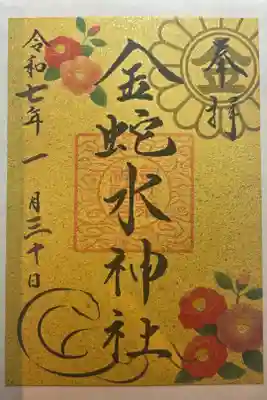 奉拝
金
金蛇水神社
令和七年一月三十日